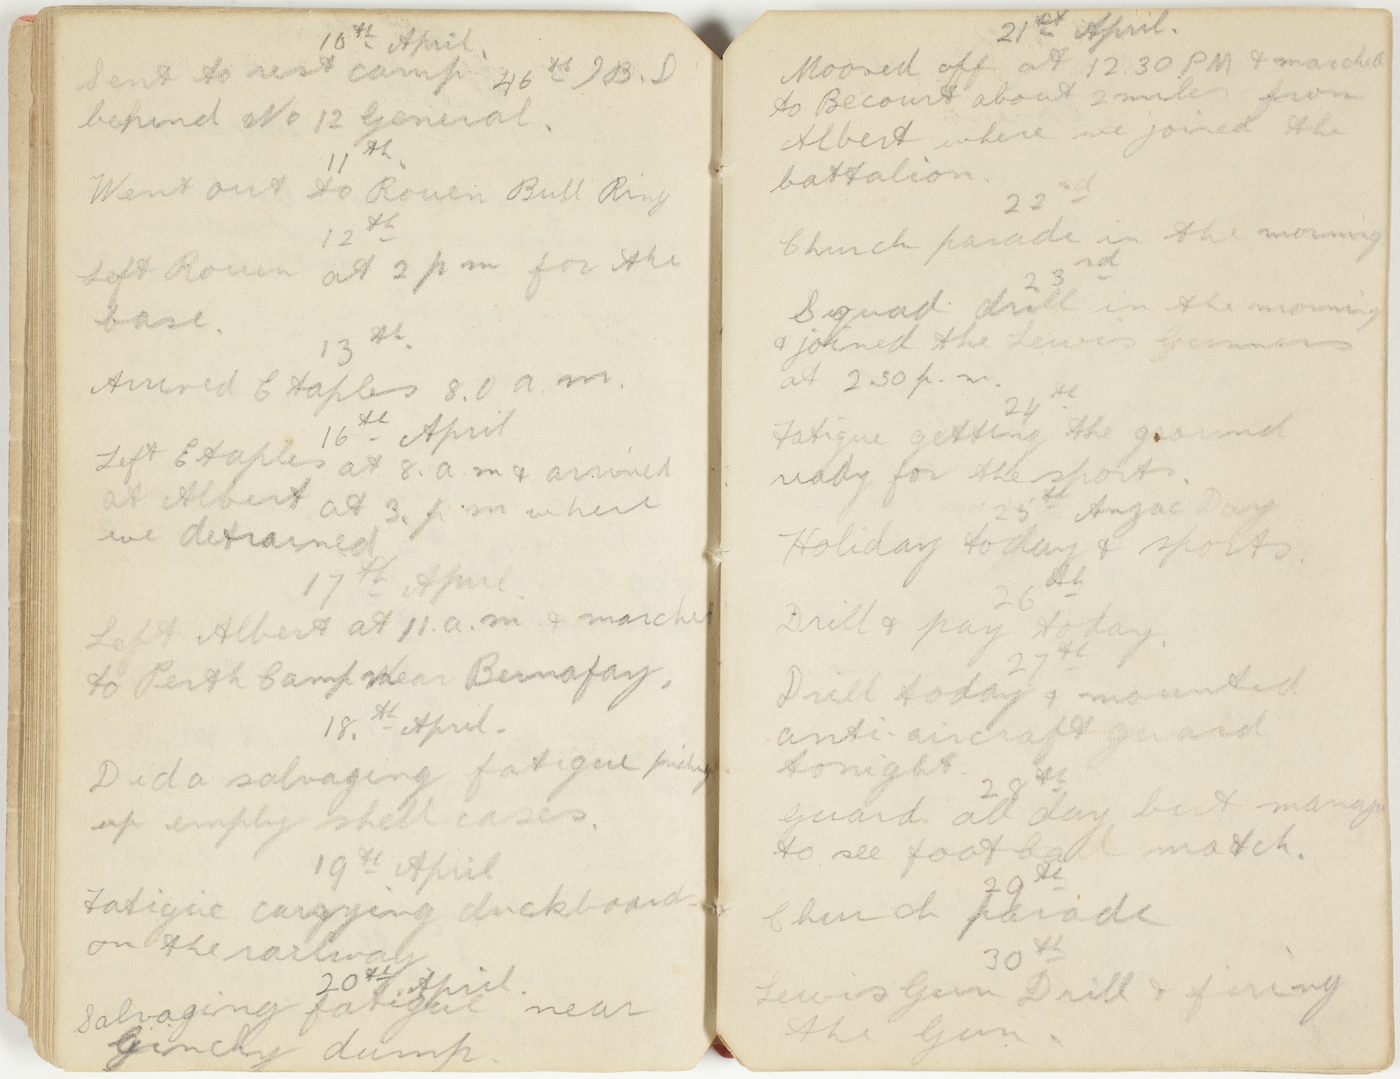 10th April.
Sent to rest camp 46th I.B.D
behind No 12 General.
11th.
Went out to Rouen Bull Ring
12th
Left Rouen at 2 p m for the
base.
13th.
Arrived Etaples 8.0 a.m.
16th April
Left Etaples at 8.a.m & arrived
at Albert at 3.p.m where
we detrained
17th April.
Left Albert at 11.a.m & marched
to Perth Camp near Bernafay.
18.th April.
Did a salvaging fatigue picking
up empty shell cases.
19th April
Fatigue carrying duckboards
on the railway
20th April.
Salvaging fatigue near
Ginchy dump.
21st April.
Mooved off at 12.30 PM & marched
to Becourt about 2 miles from
Albert where we joined the
battalion.
22nd
Church parade in the morning
23rd
Squad drill in the morning
& joined the Lewis Gunners
at 2.30 p.m.
24th
Fatigue getting the ground
ready for the sports.
25th Anzac Day
Holiday today & sports.
26th
Drill & pay today.
27th
Drill today & mounted
anti-aircraft guard
tonight.
28th
guard all day but manage
to see football match.
29th
Church parade
30th
Lewis Gun Drill & firing
the Gun.